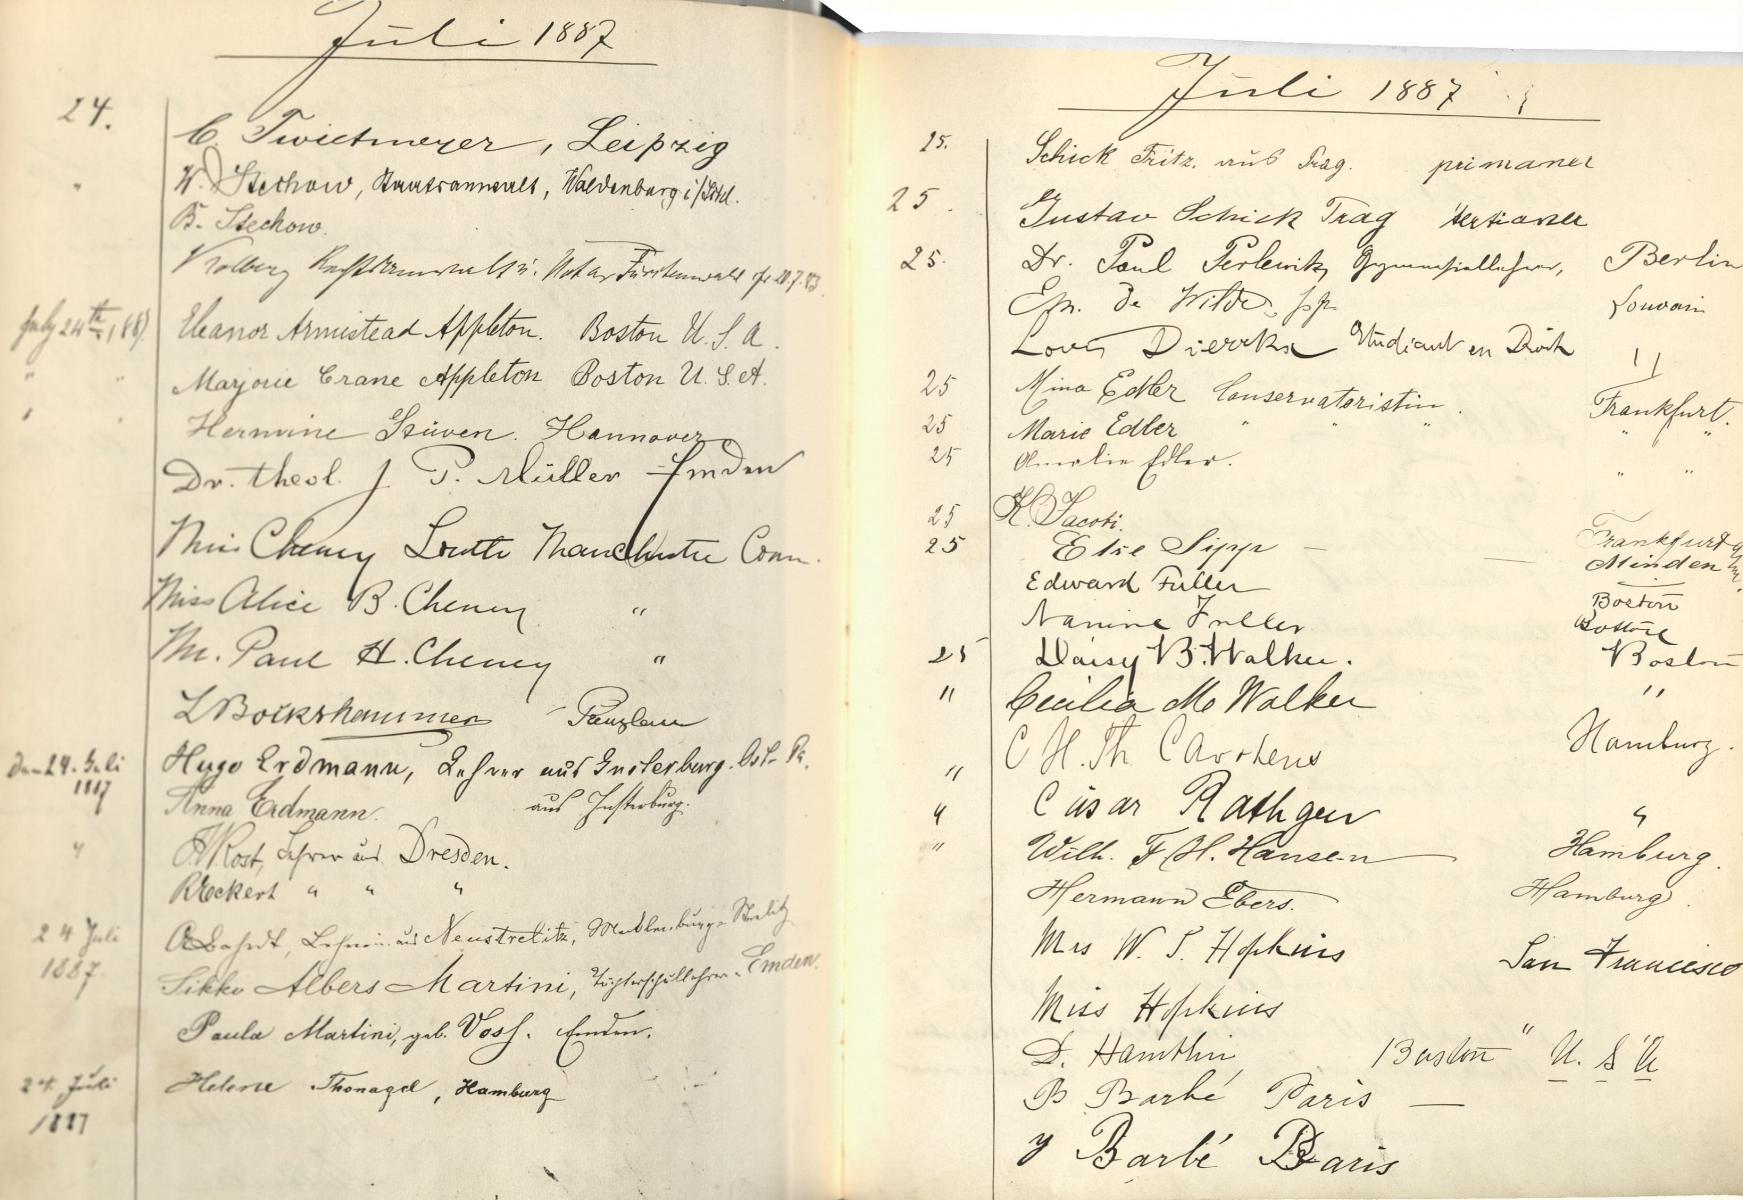 Juli 1887
24. C. Twietmeyer, Leipzig
" W. Stechow, Staatsanwalt, Waldenburg i/Schl.
B. Stechow.
Kolberg Rechtsanwalt u. Notar Fürstenwald
July 24th 1887 Eleanor Armistead Appleton. Boston U. S. A.
" " Marjorie Crane Appleton Boston U. S. A.
" " Hermine Stüven. Hannover
Dr. theol. J. P. Müller Emden
Miss Cheney South Manchester Conn.
Miss Alice B. Cheney "
Mr. Paul H. Cheney "
L Bockshammer
Den 24. Juli 1887 Hugo Erdmann, Lehrer aus Insterburg. Ost-Pr.
Anna Erdmann. aus Insterburg.
" Kost, Lehrer aus Dresden.
R Eckert " " "
24 Juli 1887. Lehrerin aus Neustrelitz, Mecklenburg-Strelitz
Sikko Albers Martini, Töchterschullehrer. Emden.
Paula Martini, geb. Voss. Emden.
24. Juli 1887 Helene Thonagel, Hamburg
Juli 1887
25. Schick Fritz. aus Prag. primaner
25. Gustav Schick Prag tertianer
25. Dr. Paul Perlewitz, Gymnasiallehrer, Berlin
Em. de Wilde Louvain
Louis Dierckx Etudiant en Droit "
25 Mina Edler Conservatoristin. Frankfurt.
25 Marie Edler " " " " "
25 Amalie Edler. " "
25 K. Jacobi. Frankfurt a/M.
25 Else Sipp — — Minden
Edward Fuller Boston
Nanine Fuller Boston
25 Daisy B. Walker. Boston
" Cecilia M. Walker "
C H. Th. Carstens Hamburg.
" Cäsar Rathgen "
" Wilh. F. H. Hansen Hamburg.
" Hermann Ebers. Hamburg.
Mrs W. S. Hopkins San Francisco
Miss Hopkins "  "
D. Hamblin Boston U. S A
B Barbé Paris —
Y Barbé Paris